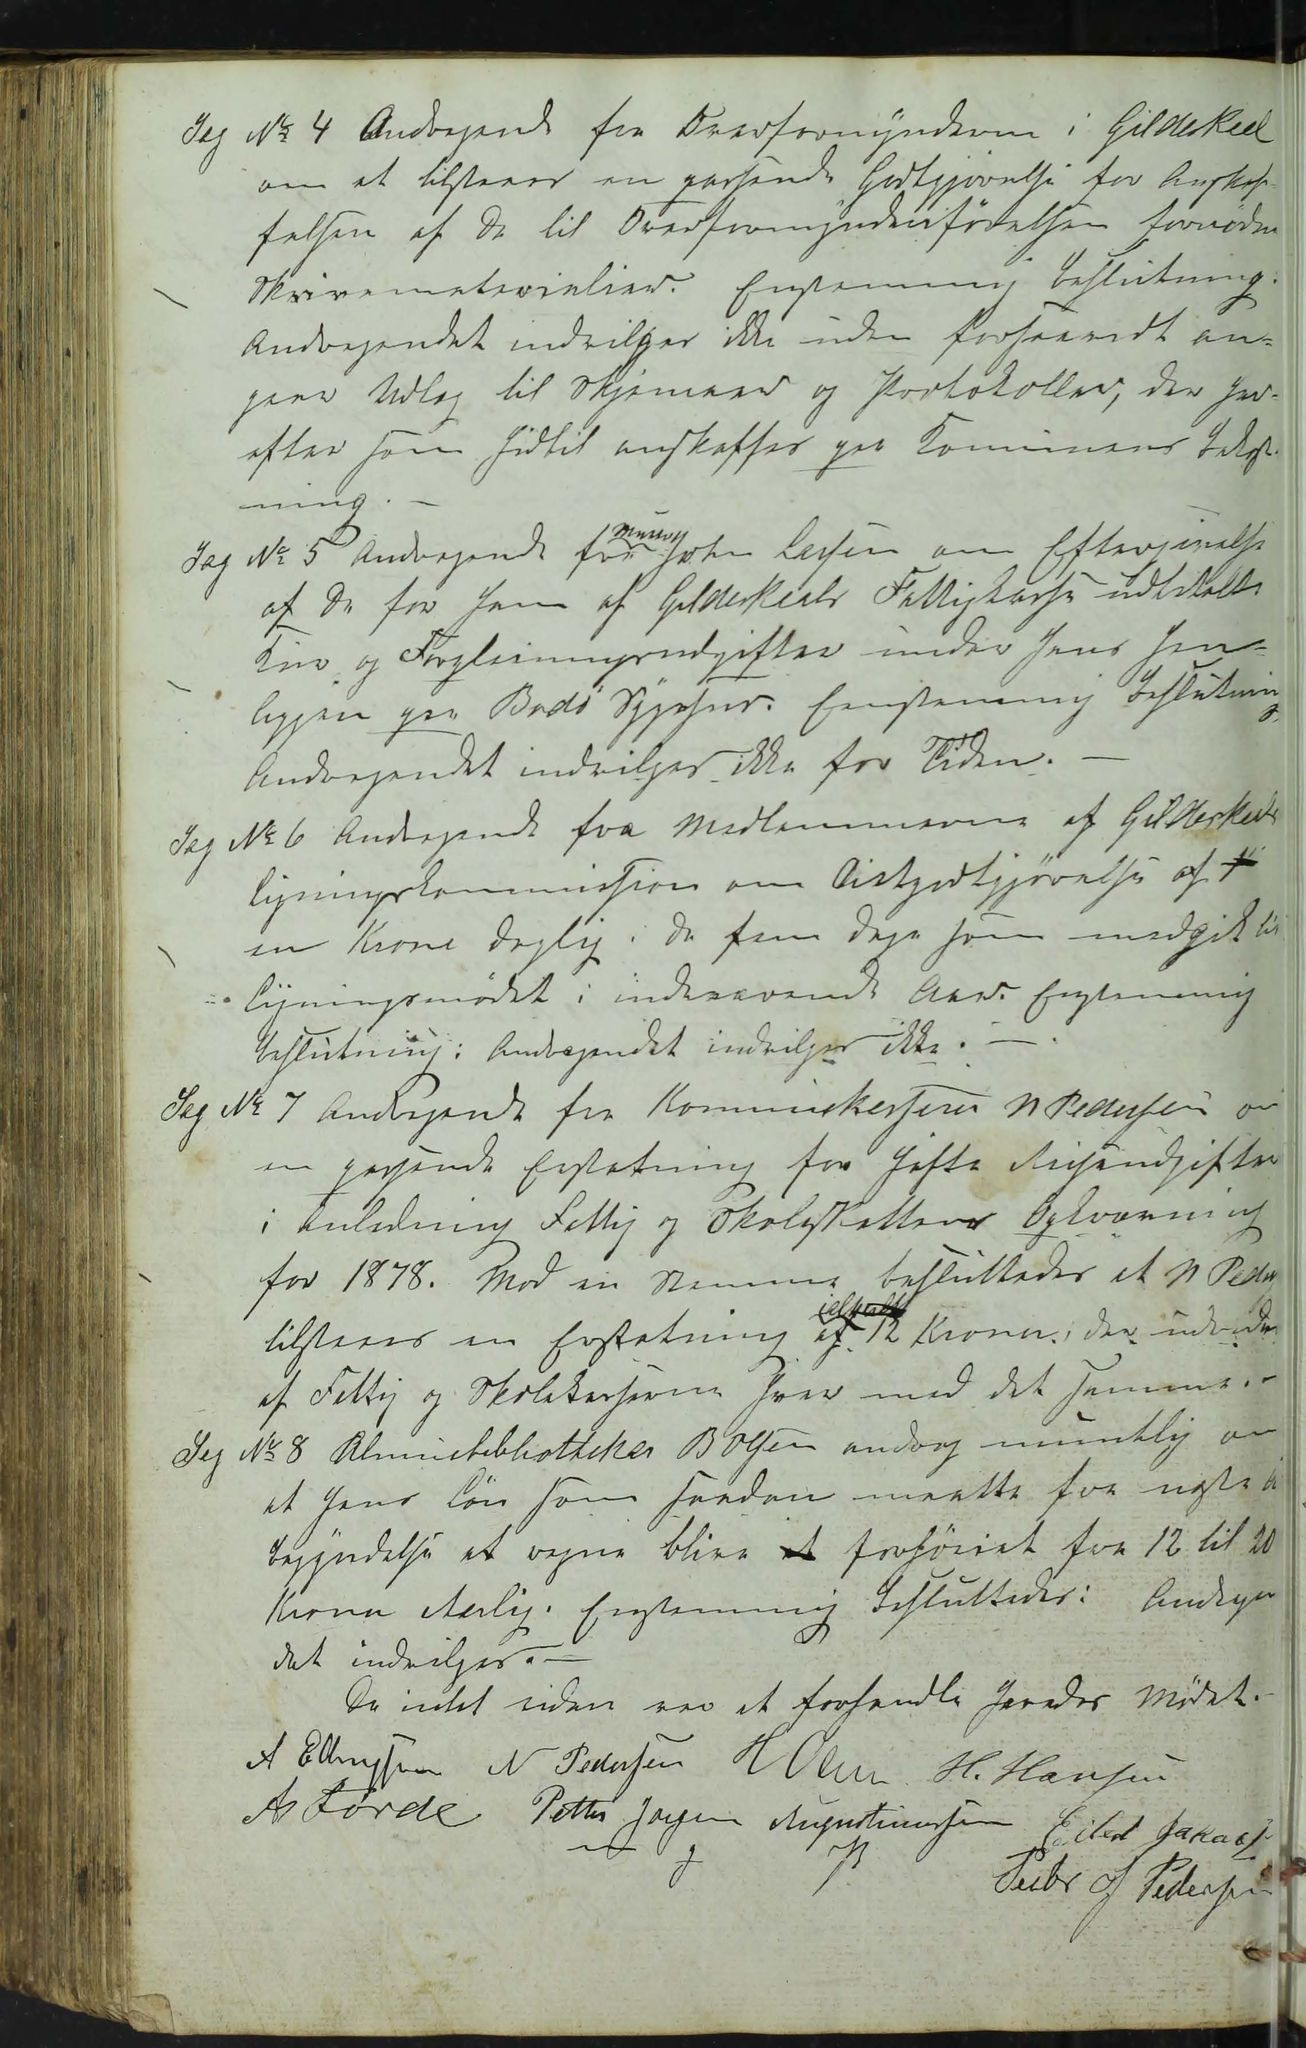 Sag No 4 Andragende fra Overformynderne i Gildeskaal
om at tilstaaes en passende Godtgjørelse for Anskaf-
felsen af de til Overformynderiførelsen fornødne
Skrivematerialier. Enstemmig Beslutning:
Andragendet indvilges ikke uden forsaavidt an-
gaar Udlæg til Skjemaer og Protokoller, der her-
efter som hidtil anskaffes paa Kommunens Bekost-
ning. —
Sag No 5 Andragende fra John Larsen om Eftergivelse
af de for ham af Gildeskaals Fattigkasse udbetalte
Kur og Forpleiningsudgifter under hans Hen-
liggen paa Bodø Sygehus. Enstemmig Beslutning
Andragendet indvilges ikke for Tiden. —
Sag No 6 Andragende fra Medlemmerne af Gildeskaals
Ligningskommission om Diætgodtgjørelse af
en Krone daglig i de fem Dage som medgik til
Ligningsmødet i indeværende Aar. Enstemmig
Beslutning: Andragendet indvilges ikke. —
Sag No 7 Andragende fra Kommunekasserer N Pedersen om
en passende Erstatning for havte Reiseudgifter
i Anledning Fattig og Skoleskattens Opkrævning
for 1878. Mod en Stemme besluttedes at N Peder
tilstaaes en Erstatning af 12 Kroner, der udredes
af Fattig og Skolekasserne hver med det samme. -
Sag No 8 Almuebibliothekar B Olsen androg mundtlig om
at hans Løn som saadan maatte fra næste Aars
Begyndelse at regne blive forhøiet fra 12 til 20
Kroner Aarlig. Enstemmig besluttedes: Andragen
det indvilges. —
Da intet videre var at forhandle hævedes Mødet. -
A Ellingsen N Pedersen H Olsen H. Hansen
As Førde Petter Jørgen Augustinussen Eilert Jakobs
m J P
Peder J Pedersen